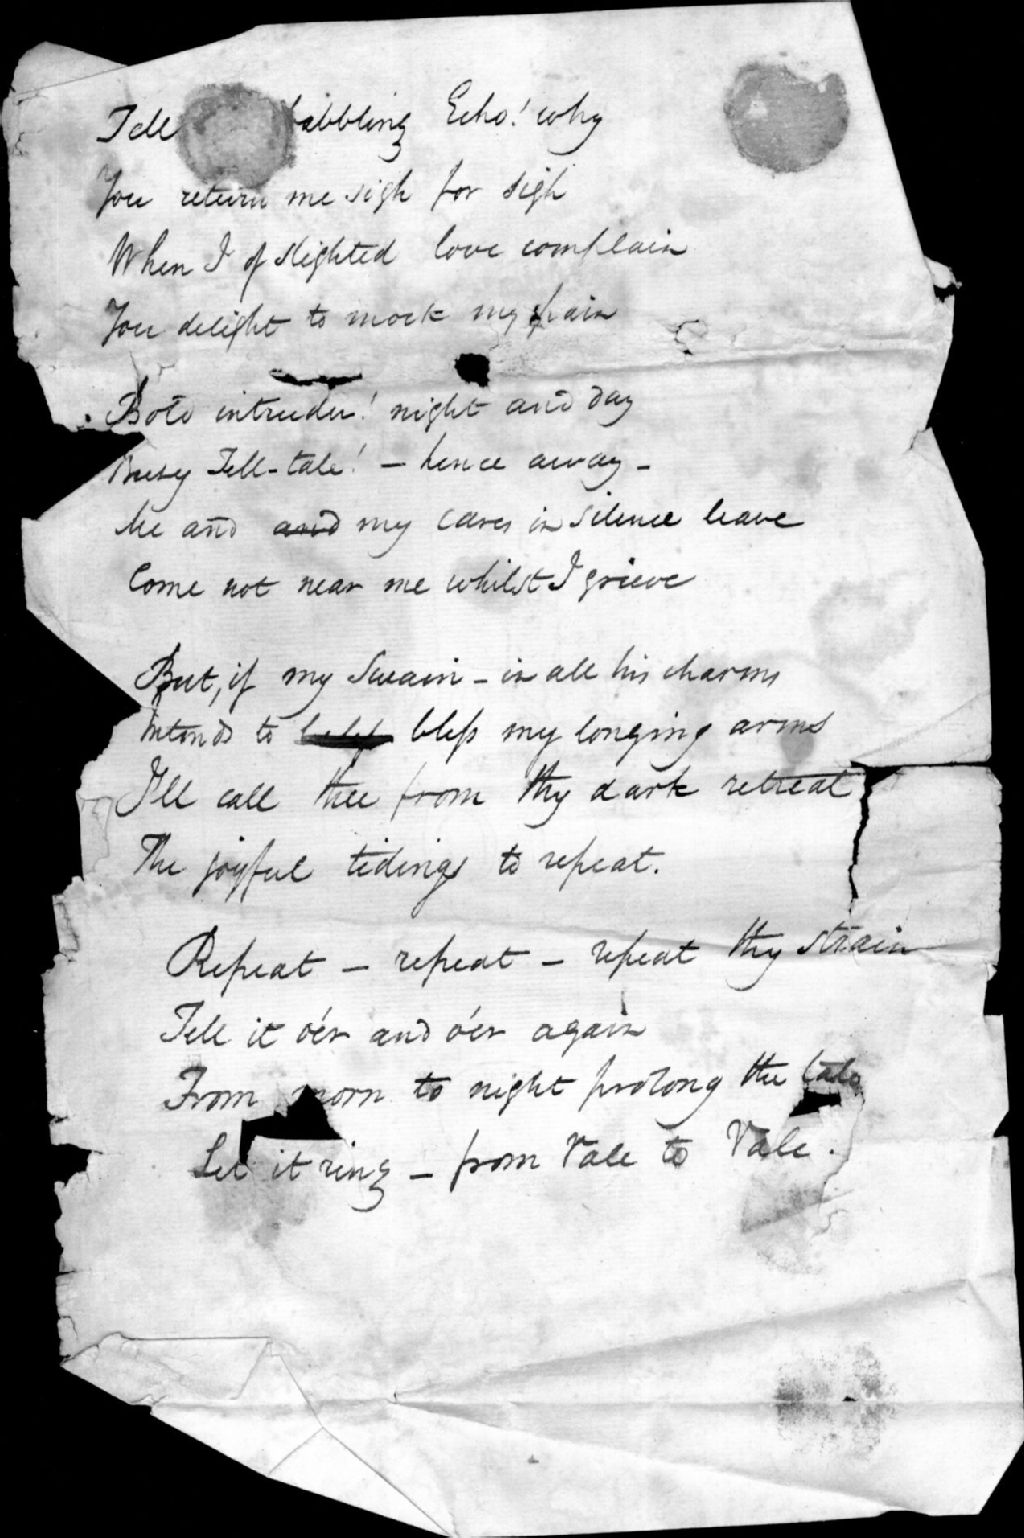 Tell babbling Echo! why
You return me sigh for sigh
When I of slighted love complain
You delight to mock my pain
Bold intruder! night and day
Busy Tell-tale! - hence away -
Me and and my cares in silence leave
Come not near me whilst I grieve
But, if my Swain - in all his charms
Intends to bless my longing arms
I'll call thee from thy dark retreat
The joyful tidings to repeat.
Repeat - repeat - repeat thy strain
Tell it o'er and o'er again
From morn to night prolong the tale
Let it ring - from Vale to Vale.